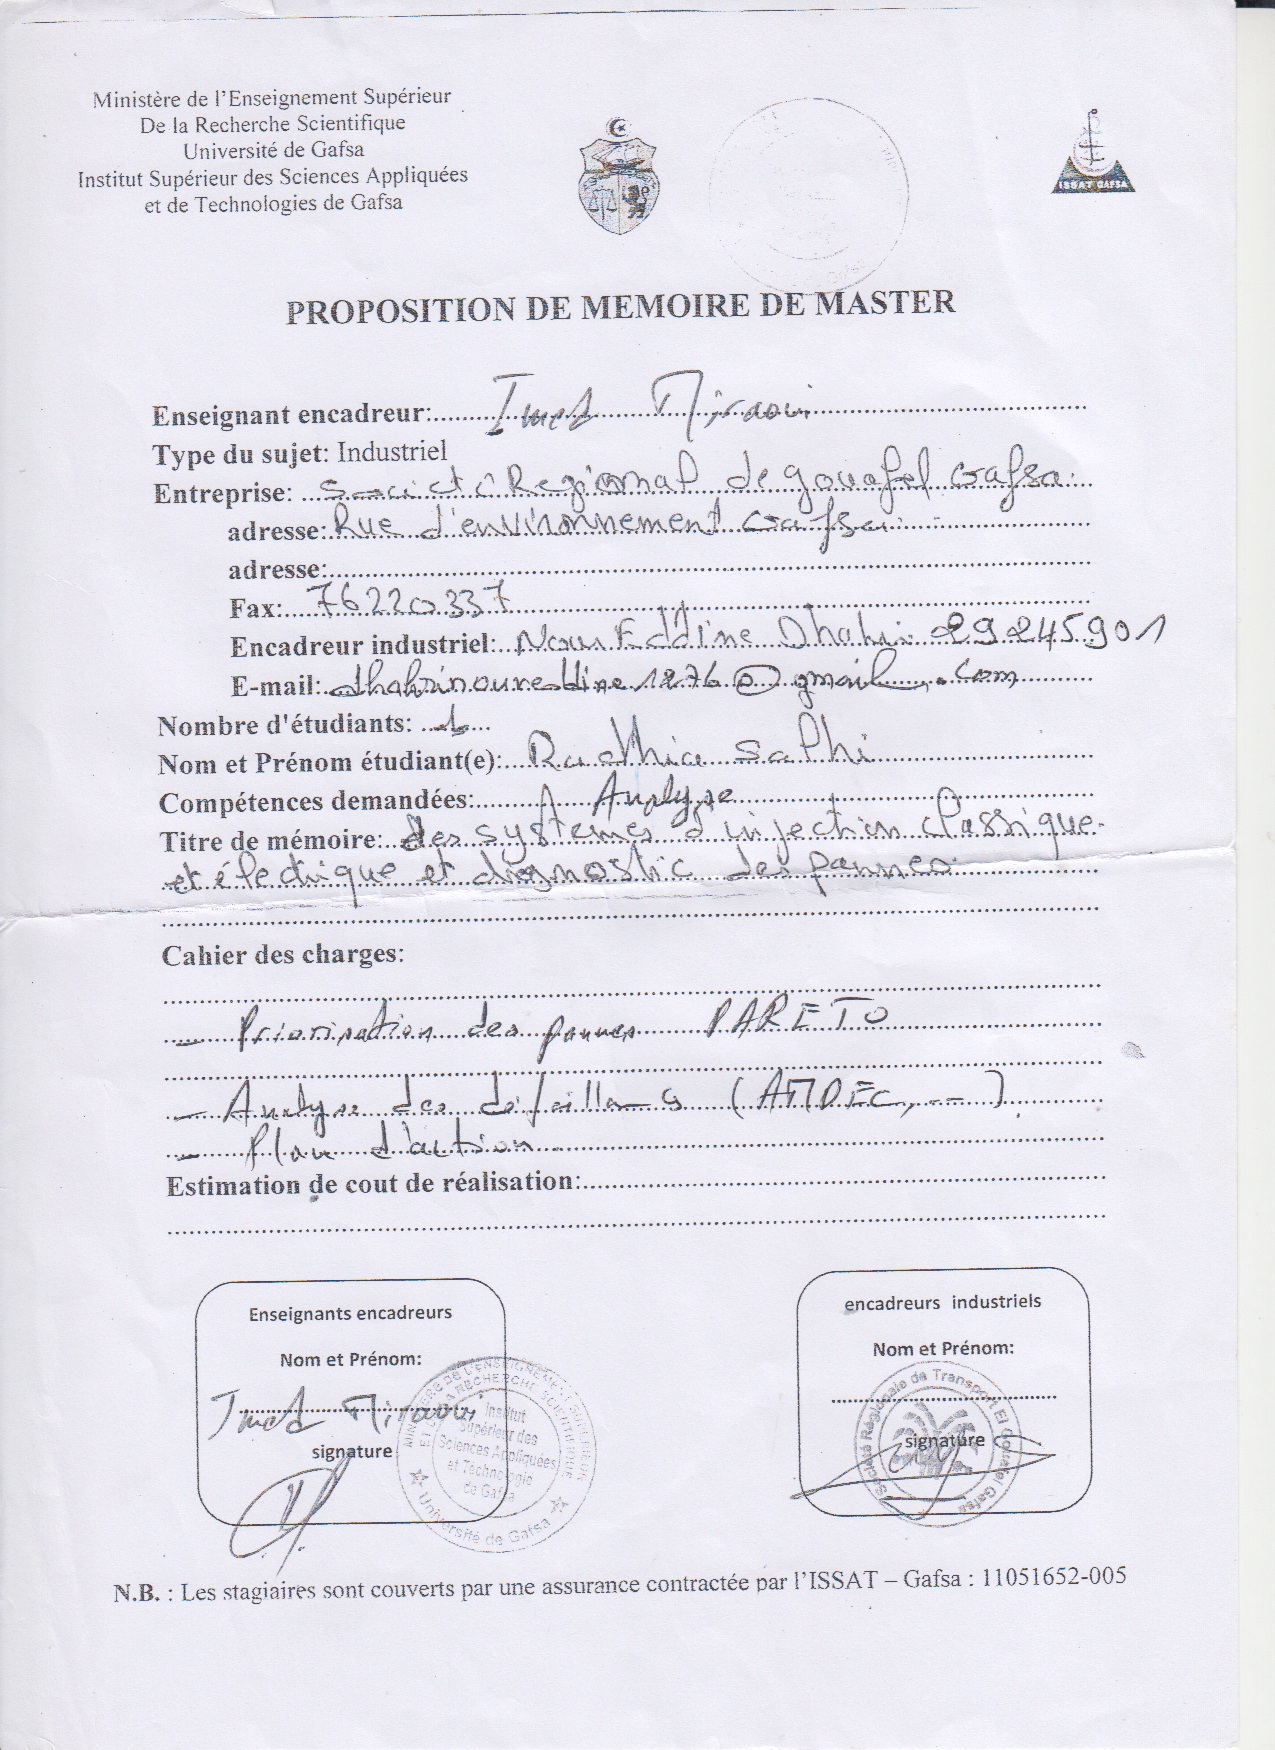 Ministère de l'Enseignement Supérieur
De la Recherche Scientifique
Université de Gafsa
Institut Supérieur des Sciences Appliquées
et de Technologies de Gafsa
ISSAT GAFSA
PROPOSITION DE MEMOIRE DE MASTER
Enseignant encadreur: Imed Miraoui
Type du sujet: Industriel
Entreprise: Societé Regional de gouafel Gafsa
adresse: Rue d'environnement Gafsa
adresse:
Fax: 76220337
Encadreur industriel: Nour Eddine Dhahri 29245901
E-mail: dhahrinoureddine1276@gmail.com
Nombre d'étudiants: 1
Nom et Prénom étudiant(e): Radhia Salhi
Compétences demandées: Analyse
Titre de mémoire: des systemes d'injection classique
et électrique et diagnostic des pannes
Cahier des charges:
- Priorisation des pannes PARETO
- Analyse des défaillances (AMDEC, --)
- Plan d'action
Estimation de cout de réalisation:
Enseignants encadreurs
Nom et Prénom:
Imed Miraoui
signature
Institut
Supérieur des
Sciences Appliquées
et Technologie
de Gafsa
Université de Gafsa
encadreurs industriels
Nom et Prénom:
signature
Société Régionale de Transport El Gouafel Gafsa
N.B. : Les stagiaires sont couverts par une assurance contractée par l'ISSAT – Gafsa : 11051652-005